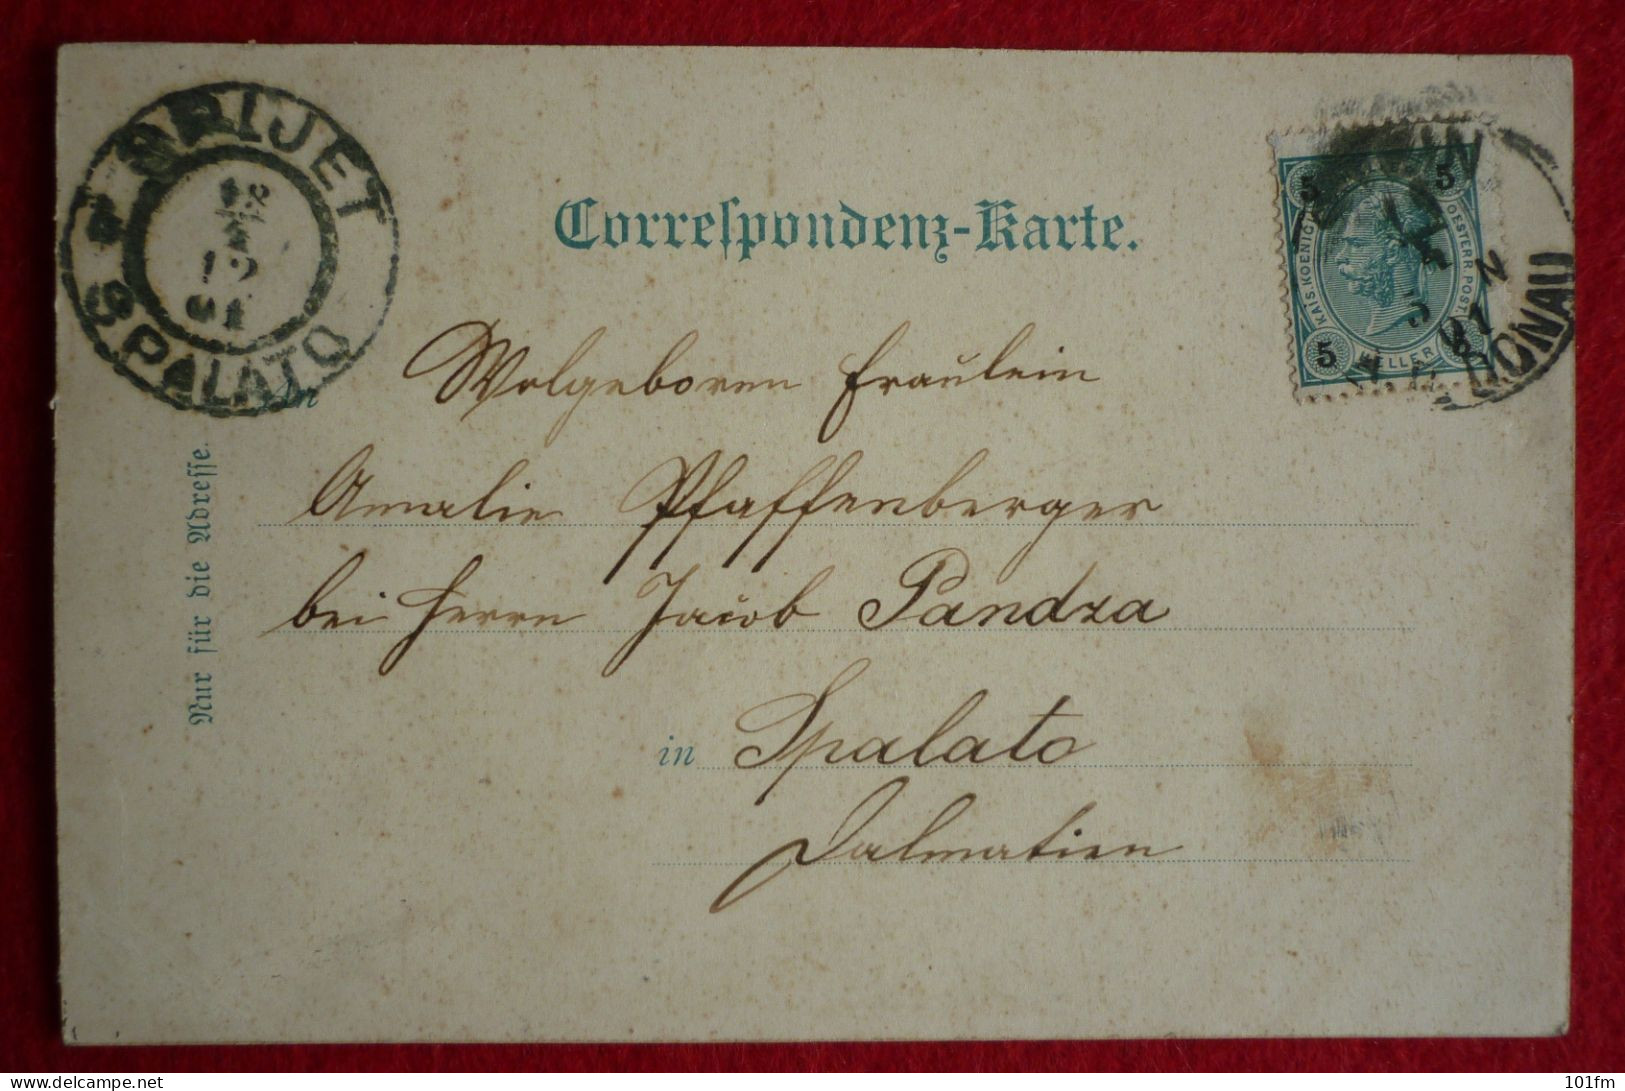 SPLJET
SPALATO
12
01
Correspondenz-Karte.
5 5
KAIS. KOENIGL. OESTERR. POST
5 HELLER
DONAU
01
An Wolgeboren Fräulein
Amalie Pfaffenberger
bei Herrn Jacob Pandza
in Spalato
Dalmatien
Nur für die Adresse.
delcampe.net
101fm